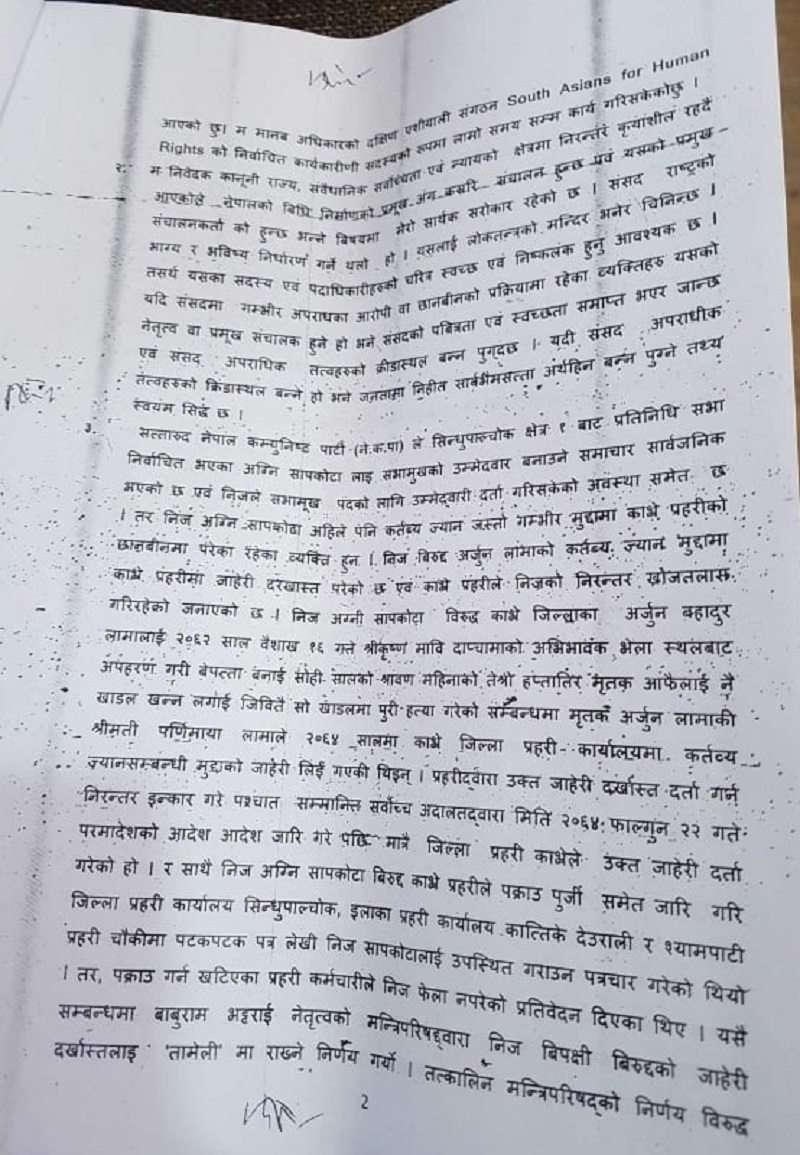 आएको छु। म मानब अधिकारको दक्षिण एशीयाली संगठन South Asians for Human
Rights को निर्वाचित कार्यकारीणी सदस्यको रुपमा लामो समय सम्म कार्य गरिसकेकोछु ।
२. म निवेदक कानूनी राज्य, संवैधानिक सर्वोच्चता एवं न्यायको क्षेत्रमा निरन्तर कृयाशील रहदै
आएकोले नेपालको बिधि निर्माणको प्रमूख अंग कसरि संचालन हुन्छ एवं यसको प्रमुख
संचालनकर्ता को हुन्छ भन्ने बिषयमा मेरो सार्थक सरोकार रहेको छ । संसद राष्ट्रको
भाग्य र भबिष्य निर्धारण गर्ने थलो हो । यसलाई लोकतन्त्रको मन्दिर भनेर चिनिन्छ ।
तसर्थ यसका सदस्य एवं पदाधिकारीहरुको चरित्र स्वच्छ एवं निष्कलंक हुनु आवश्यक छ ।
यदि संसदमा गम्भीर अपराधका आरोपी वा छानबीनको प्रक्रियामा रहेका व्यक्तिहरु यसको
नेतृत्व वा प्रमूख संचालक हुने हो भने संसदको पबित्रता एवं स्वच्छता समाप्त भएर जान्छ
एवं संसद अपराधिक तत्वहरुको क्रीडास्थल बन्न पुग्दछ । यदी संसद अपराधीक
तत्वहरुको क्रिडास्थल बन्ने हो भने जनतामा निहीत सार्वभौमसत्ता अर्थहिन बन्न पुग्ने तथ्य
स्वयम सिद्ध छ ।
३. सत्तारुढ नेपाल कम्युनिष्ट पार्टी (ने.क.पा) ले सिन्धुपाल्चोक क्षेत्र १ बाट प्रतिनिधि सभा
निर्वाचित भएका अग्नि सापकोटा लाइ सभामुखको उम्मेदवार बनाउने समाचार सार्वजनिक
भएको छ एवं निजले सभामूख पदको लागि उम्मेदवारी दर्ता गरिसकेको अवस्था समेत छ
। तर निज अग्नि सापकोटा अहिले पनि कर्तब्य ज्यान जस्तो गम्भीर मुद्दामा काभ्रे प्रहरीको
छानबीनमा परेका रहेका व्यक्ति हुन । निज बिरुद्द अर्जुन लामाको कर्तब्य ज्यान मुद्दामा
काभ्रे प्रहरीमा जाहेरी दरखास्त परेको छ एवं काभ्रे प्रहरीले निजको निरन्तर खोजतलास
गरिरहेको जनाएको छ । निज अग्नी सापकोटा विरुद्ध काभ्रे जिल्लाका अर्जुन बहादुर
लामालाई २०६२ साल वैशाख १६ गते श्रीकृष्ण मावि दाप्चामाको अभिभावक भेला स्थलबाट
अपहरण गरी बेपत्ता बनाई सोही सालको श्रावण महिनाको तेश्रो हप्तातिर मृतक आफैलाई नै
खाडल खन्न लगाई जिवितै सो खाडलमा पुरी हत्या गरेको सम्बन्धमा मृतक अर्जुन लामाकी
श्रीमती पूर्णिमाया लामाले २०६४ सालमा काभ्रे जिल्ला प्रहरी कार्यालयमा कर्तव्य
ज्यानसम्बन्धी मुद्दाको जाहेरी लिई गएकी थिइन् । प्रहरीद्वारा उक्त जाहेरी दर्खास्त दर्ता गर्न
निरन्तर इन्कार गरे पश्चात सम्मानित सर्वोच्च अदालतद्वारा मिति २०६४ फाल्गुन २२ गते
परमादेशको आदेश आदेश जारि गरे पछि मात्रै जिल्ला प्रहरी काभ्रेले उक्त जाहेरी दर्ता
गरेको हो । र साथै निज अग्नि सापकोटा बिरुद्द काभ्रे प्रहरीले पक्राउ पुर्जी समेत जारि गरि
जिल्ला प्रहरी कार्यालय सिन्धुपाल्चोक, इलाका प्रहरी कार्यालय कात्तिके देउराली र श्यामपाटी
प्रहरी चौकीमा पटकपटक पत्र लेखी निज सापकोटालाई उपस्थित गराउन पत्रचार गरेको थियो
। तर, पक्राउ गर्न खटिएका प्रहरी कर्मचारीले निज फेला नपरेको प्रतिवेदन दिएका थिए । यसै
सम्बन्धमा बाबुराम भट्टराई नेतृत्वको मन्त्रिपरिषद्द्वारा निज बिपक्षी बिरुद्दको जाहेरी
दर्खास्तलाइ 'तामेली' मा राख्ने निर्णय गर्यो । तत्कालिन मन्त्रिपरिषद्को निर्णय विरुद्ध
2